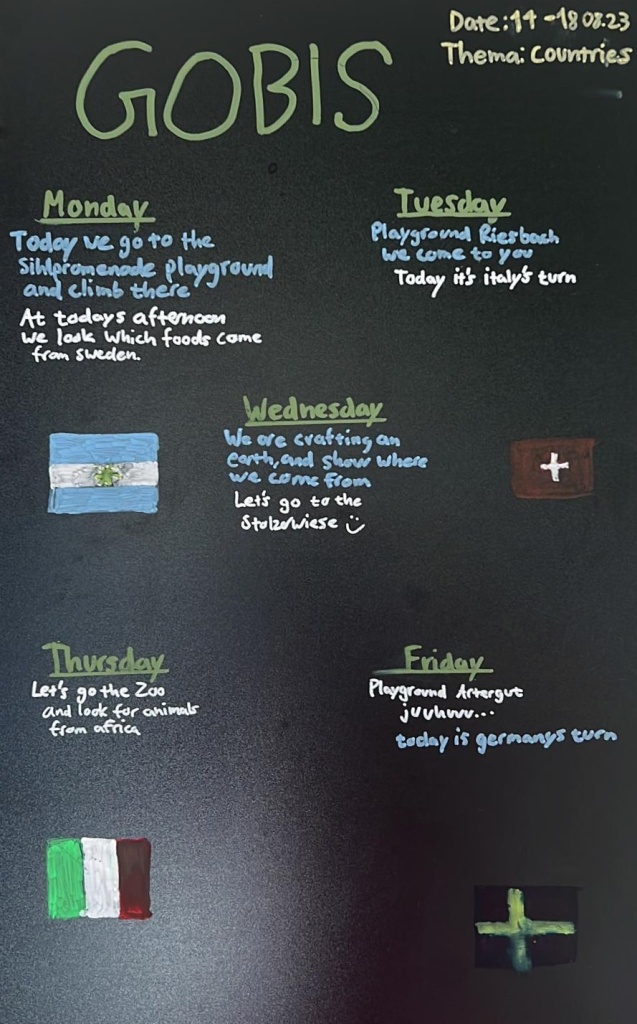 Date: 14 - 18 08.23
Thema: Countries
GOBIS
Monday
Today we go to the
Sihlpromenade playground
and climb there
At todays afternoon
we look which foods come
from Sweden.
Tuesday
Playground Riesbach
we come to you
Today it's italy's turn
Wednesday
We are crafting an
earth, and show where
we come from
Let's go to the
Stolzewiese
Thursday
Let's go the Zoo
and look for animals
from africa
Friday
Playground Artergut
juuhuu...
today is germanys turn